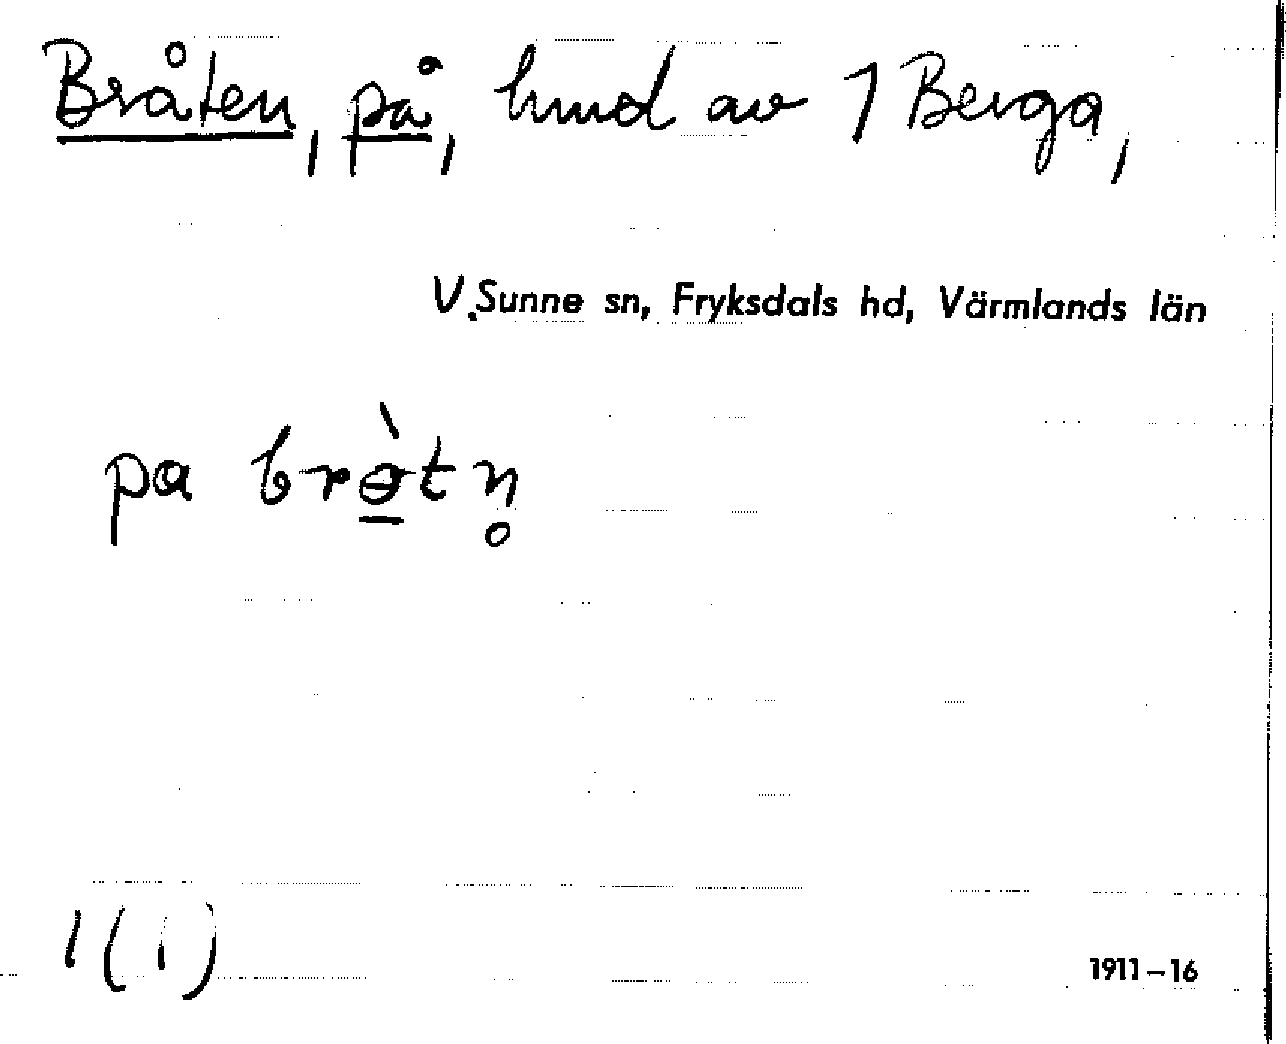 Bråten, på, hmd av 1 Berga,
V. Sunne sn, Fryksdals hd, Värmlands län
pa brɵ̀tn̥
1 (1)
1911–16